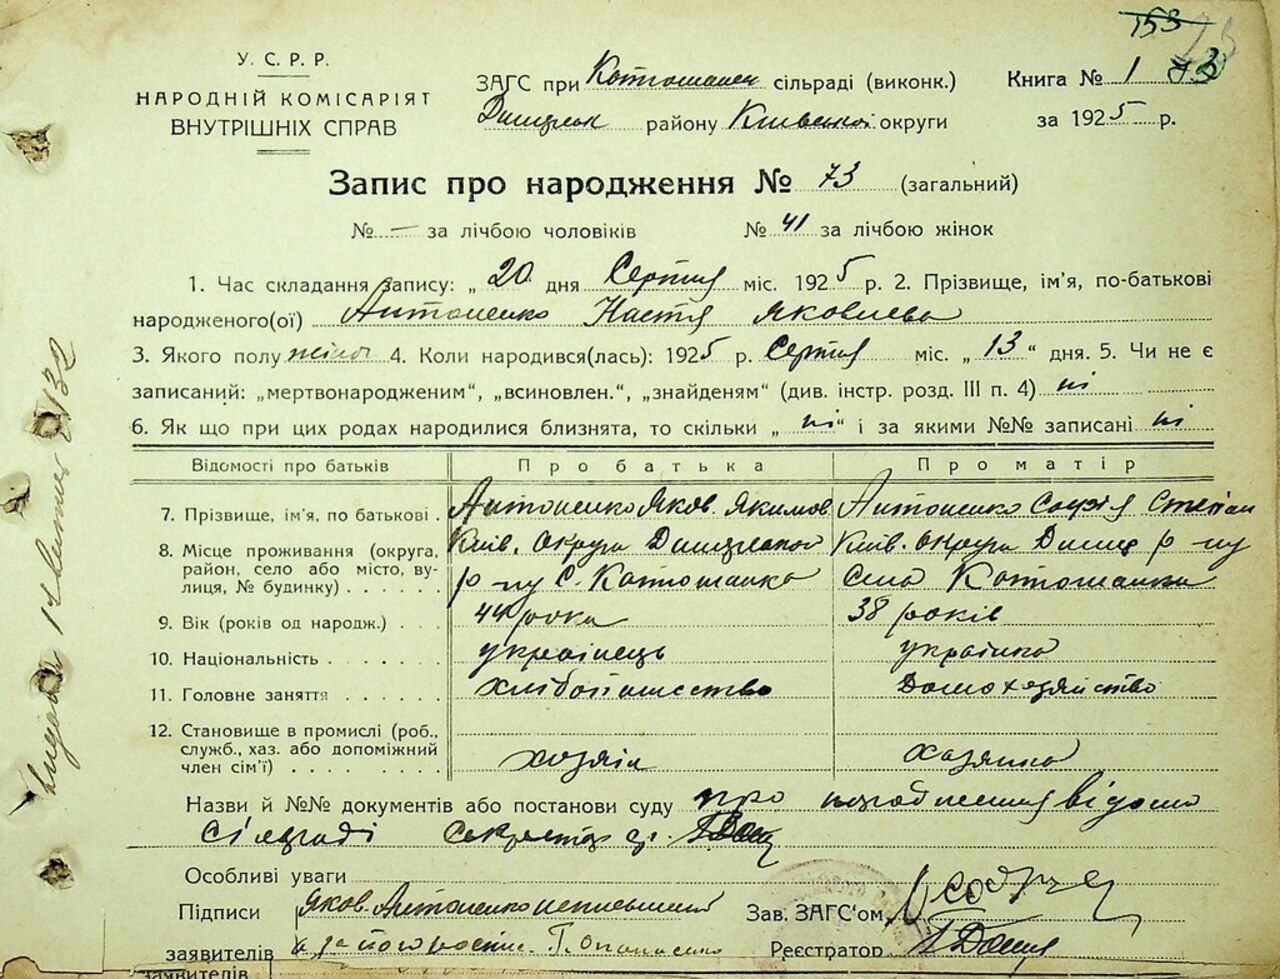 153
У. С. Р. Р.
НАРОДНІЙ КОМІСАРІЯТ
ВНУТРІШНІХ СПРАВ
ЗАГС при сільраді (виконк.)
району Київської округи
Книга № 1
за 1925 р.
Запис про народження № 73 (загальний)
№ — за лічбою чоловіків № 41 за лічбою жінок
1. Час складання запису: „ 20 дня Серпня міс. 1925 р. 2. Прізвище, ім'я, по-батькові
народженого(ої) Антоненко Настя Яковлева
3. Якого полу жіноч 4. Коли народився(лась): 1925 р. Серпня міс. „ 13 “ дня. 5. Чи не є
записаний: „мертвонародженим“, „всиновлен.“, „знайденям“ (див. інстр. розд. III п. 4) ні
6. Як що при цих родах народилися близнята, то скільки „ ні “ і за якими №№ записані ні
Відомості про батьків Про батька Про матір
7. Прізвище, ім'я, по батькові . Антоненко Яков. Якимов. Антоненко Софія Степан
8. Місце проживання (округа, район, село або місто, вулиця, № будинку) . . . . . .
Київ. округа
р-ну С. Котюшанка
Київ. округа р-ну
село Котюшанка
9. Вік (років од народж.) . . . 44 роки 38 років
10. Національність . . . . . . українець українка
11. Головне заняття . . . . . . хлібопашество Домохозяйство
12. Становище в промислі (роб., служб., хаз. або допоміжний член сім'ї) . . . . . . . . хозяін хазяика
Назви й №№ документів або постанови суду про відомо
сільраді секретар
Особливі уваги
Підписи Яков. Антоненко неписьмений Зав. ЗАГС'ом
заявителів а за його роспис. Г. Опанасенко Реєстратор
заявителів